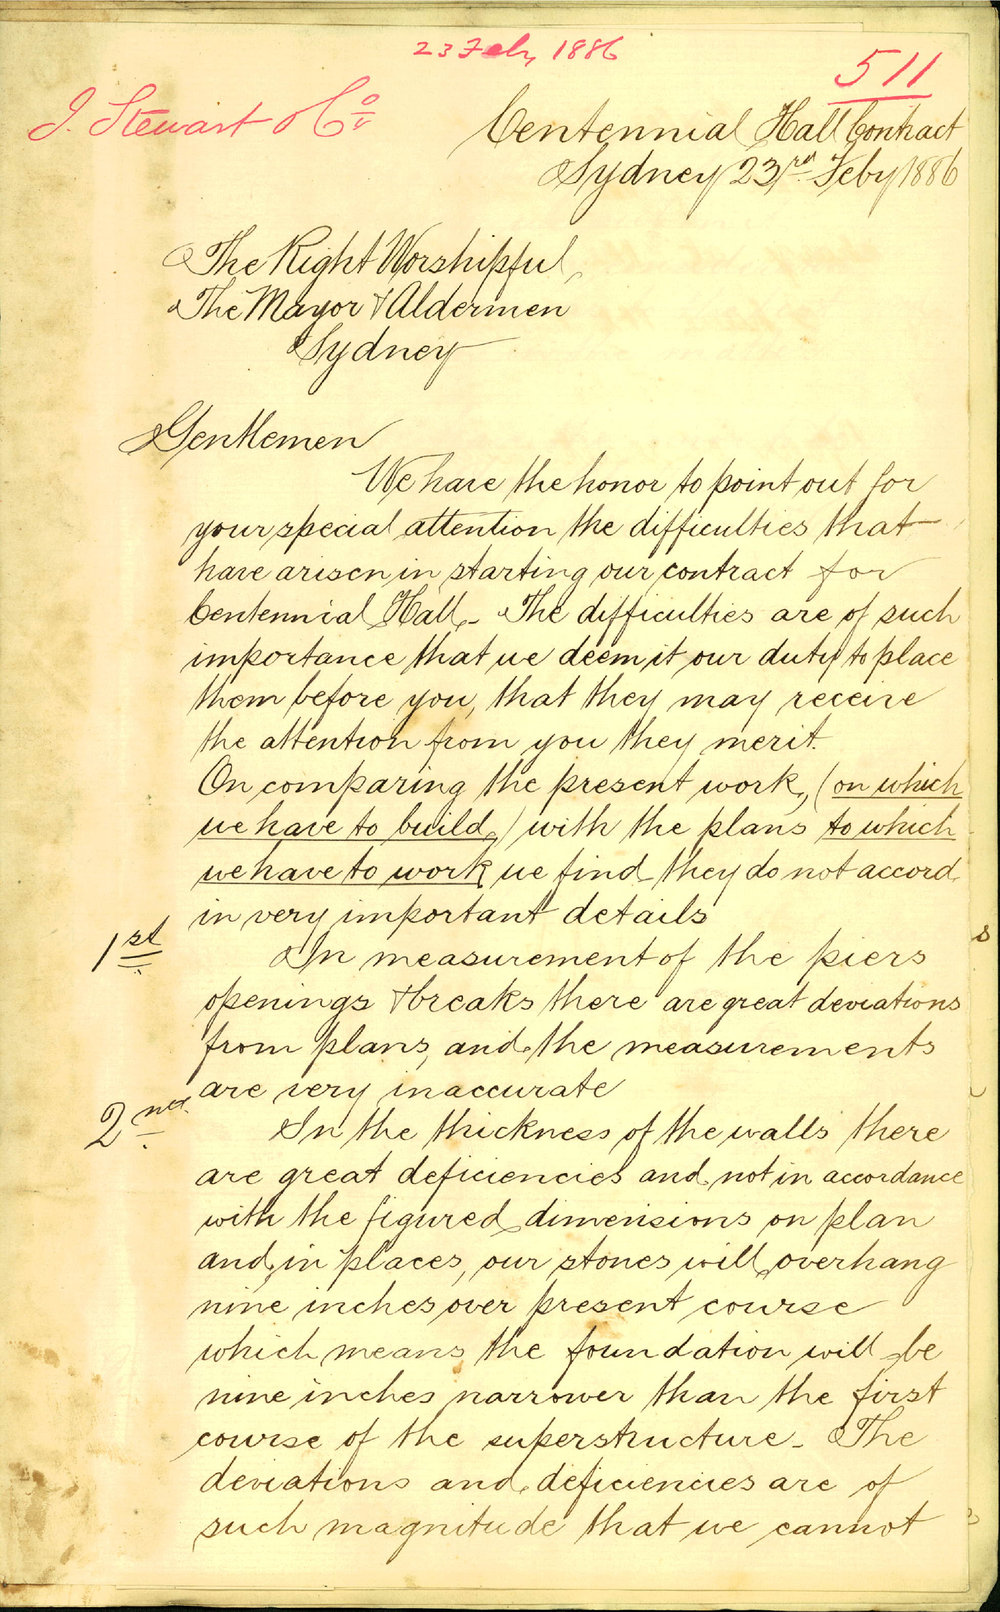 23 Feby 1886
511
J. Stewart & Co
Centennial Hall Contract
Sydney 23rd Feby 1886
The Right Worshipful,
The Mayor & Aldermen
Sydney
Gentlemen
We have the honor to point out for
your special attention the difficulties that
have arisen in starting our contract for
Centennial Hall - The difficulties are of such
importance that we deem it our duty to place
them before you, that they may receive
the attention from you they merit.
On comparing the present work, (on which
we have to build,) with the plans to which
we have to work we find they do not accord
in very important details
1st
In measurement of the piers
openings & breaks there are great deviations
from plans, and the measurements
are very inaccurate
2nd
In the thickness of the walls there
are great deficiencies and not in accordance
with the figured dimensions on plan
and in places, our stones will overhang
nine inches over present course
which means the foundation will be
nine inches narrower than the first
course of the superstructure - The
deviations and deficiencies are of
such magnitude that we cannot